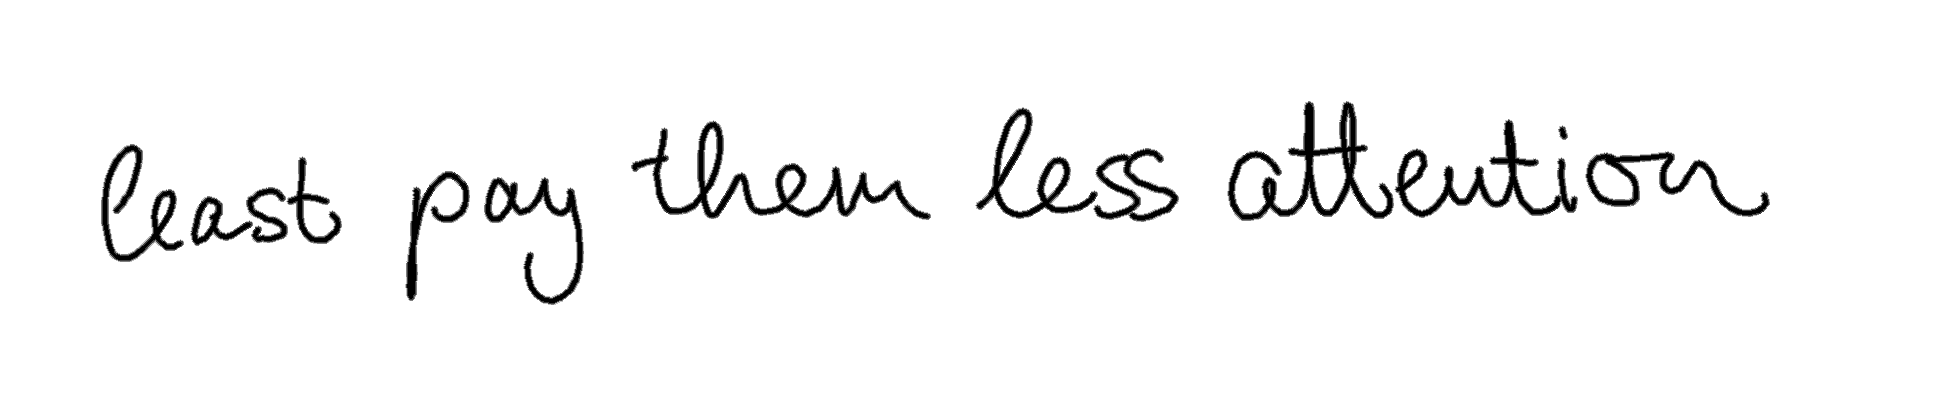 least pay them less attention